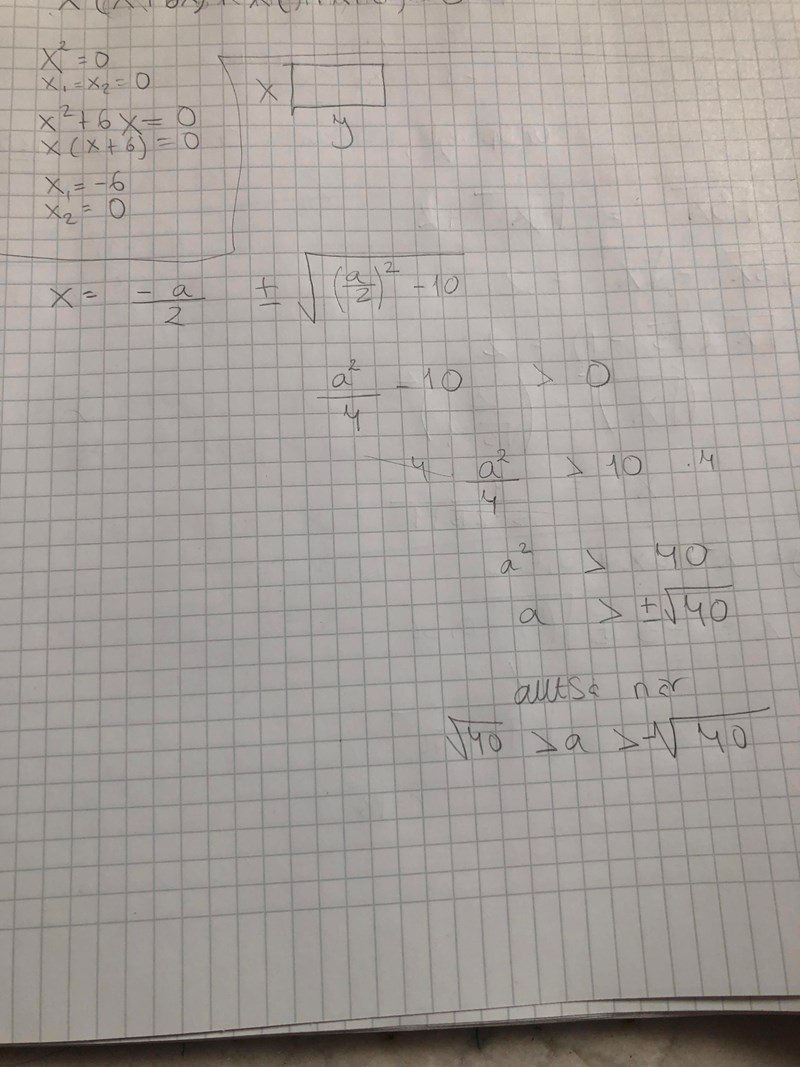 x² = 0
x₁ = x₂ = 0
x² + 6x = 0
x(x+6) = 0
x₁ = -6
x₂ = 0
x
y
x = -a/2 ± √((a/2)² - 10)
a²/4 - 10 > 0
a²/4 > 10 · 4
a² > 40
a > ±√40
alltså när
√40 > a > -√40